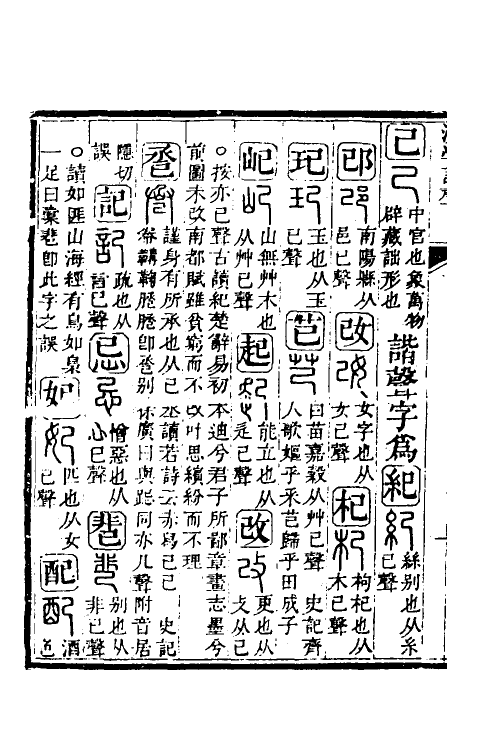 己 中宮也象萬物辟藏詘形也 諧聲字爲 紀 絲別也从糸己聲
邔 南陽縣从邑己聲 妀 女字也从女己聲 杞 枸杞也从木己聲
玘 玉也从玉己聲 芑 白苗嘉穀从艸己聲 史記齊人歌嫗乎采芑歸乎田成子
屺 山無艸木也从艸己聲 起 能立也从走己聲 改 更也从攴己
○按亦己聲古讀紀楚辭易初本迪兮君子所鄙章畫志墨兮前圖未改南都賦雖貧窮而不改叶思繽紛而不理
巹 謹身有所承也从己丞讀若詩云赤舄己己 史記韝鞠卽巹別體廣曰與跽同亦几聲附音居
隱切誤 記 疏也从言己聲 忌 憎惡也从心己聲 㠱 別也从非己聲
○請如匪山海經有鳥如梟一足曰橐㠱卽此字之誤 妃 匹也从女己聲 配 酒